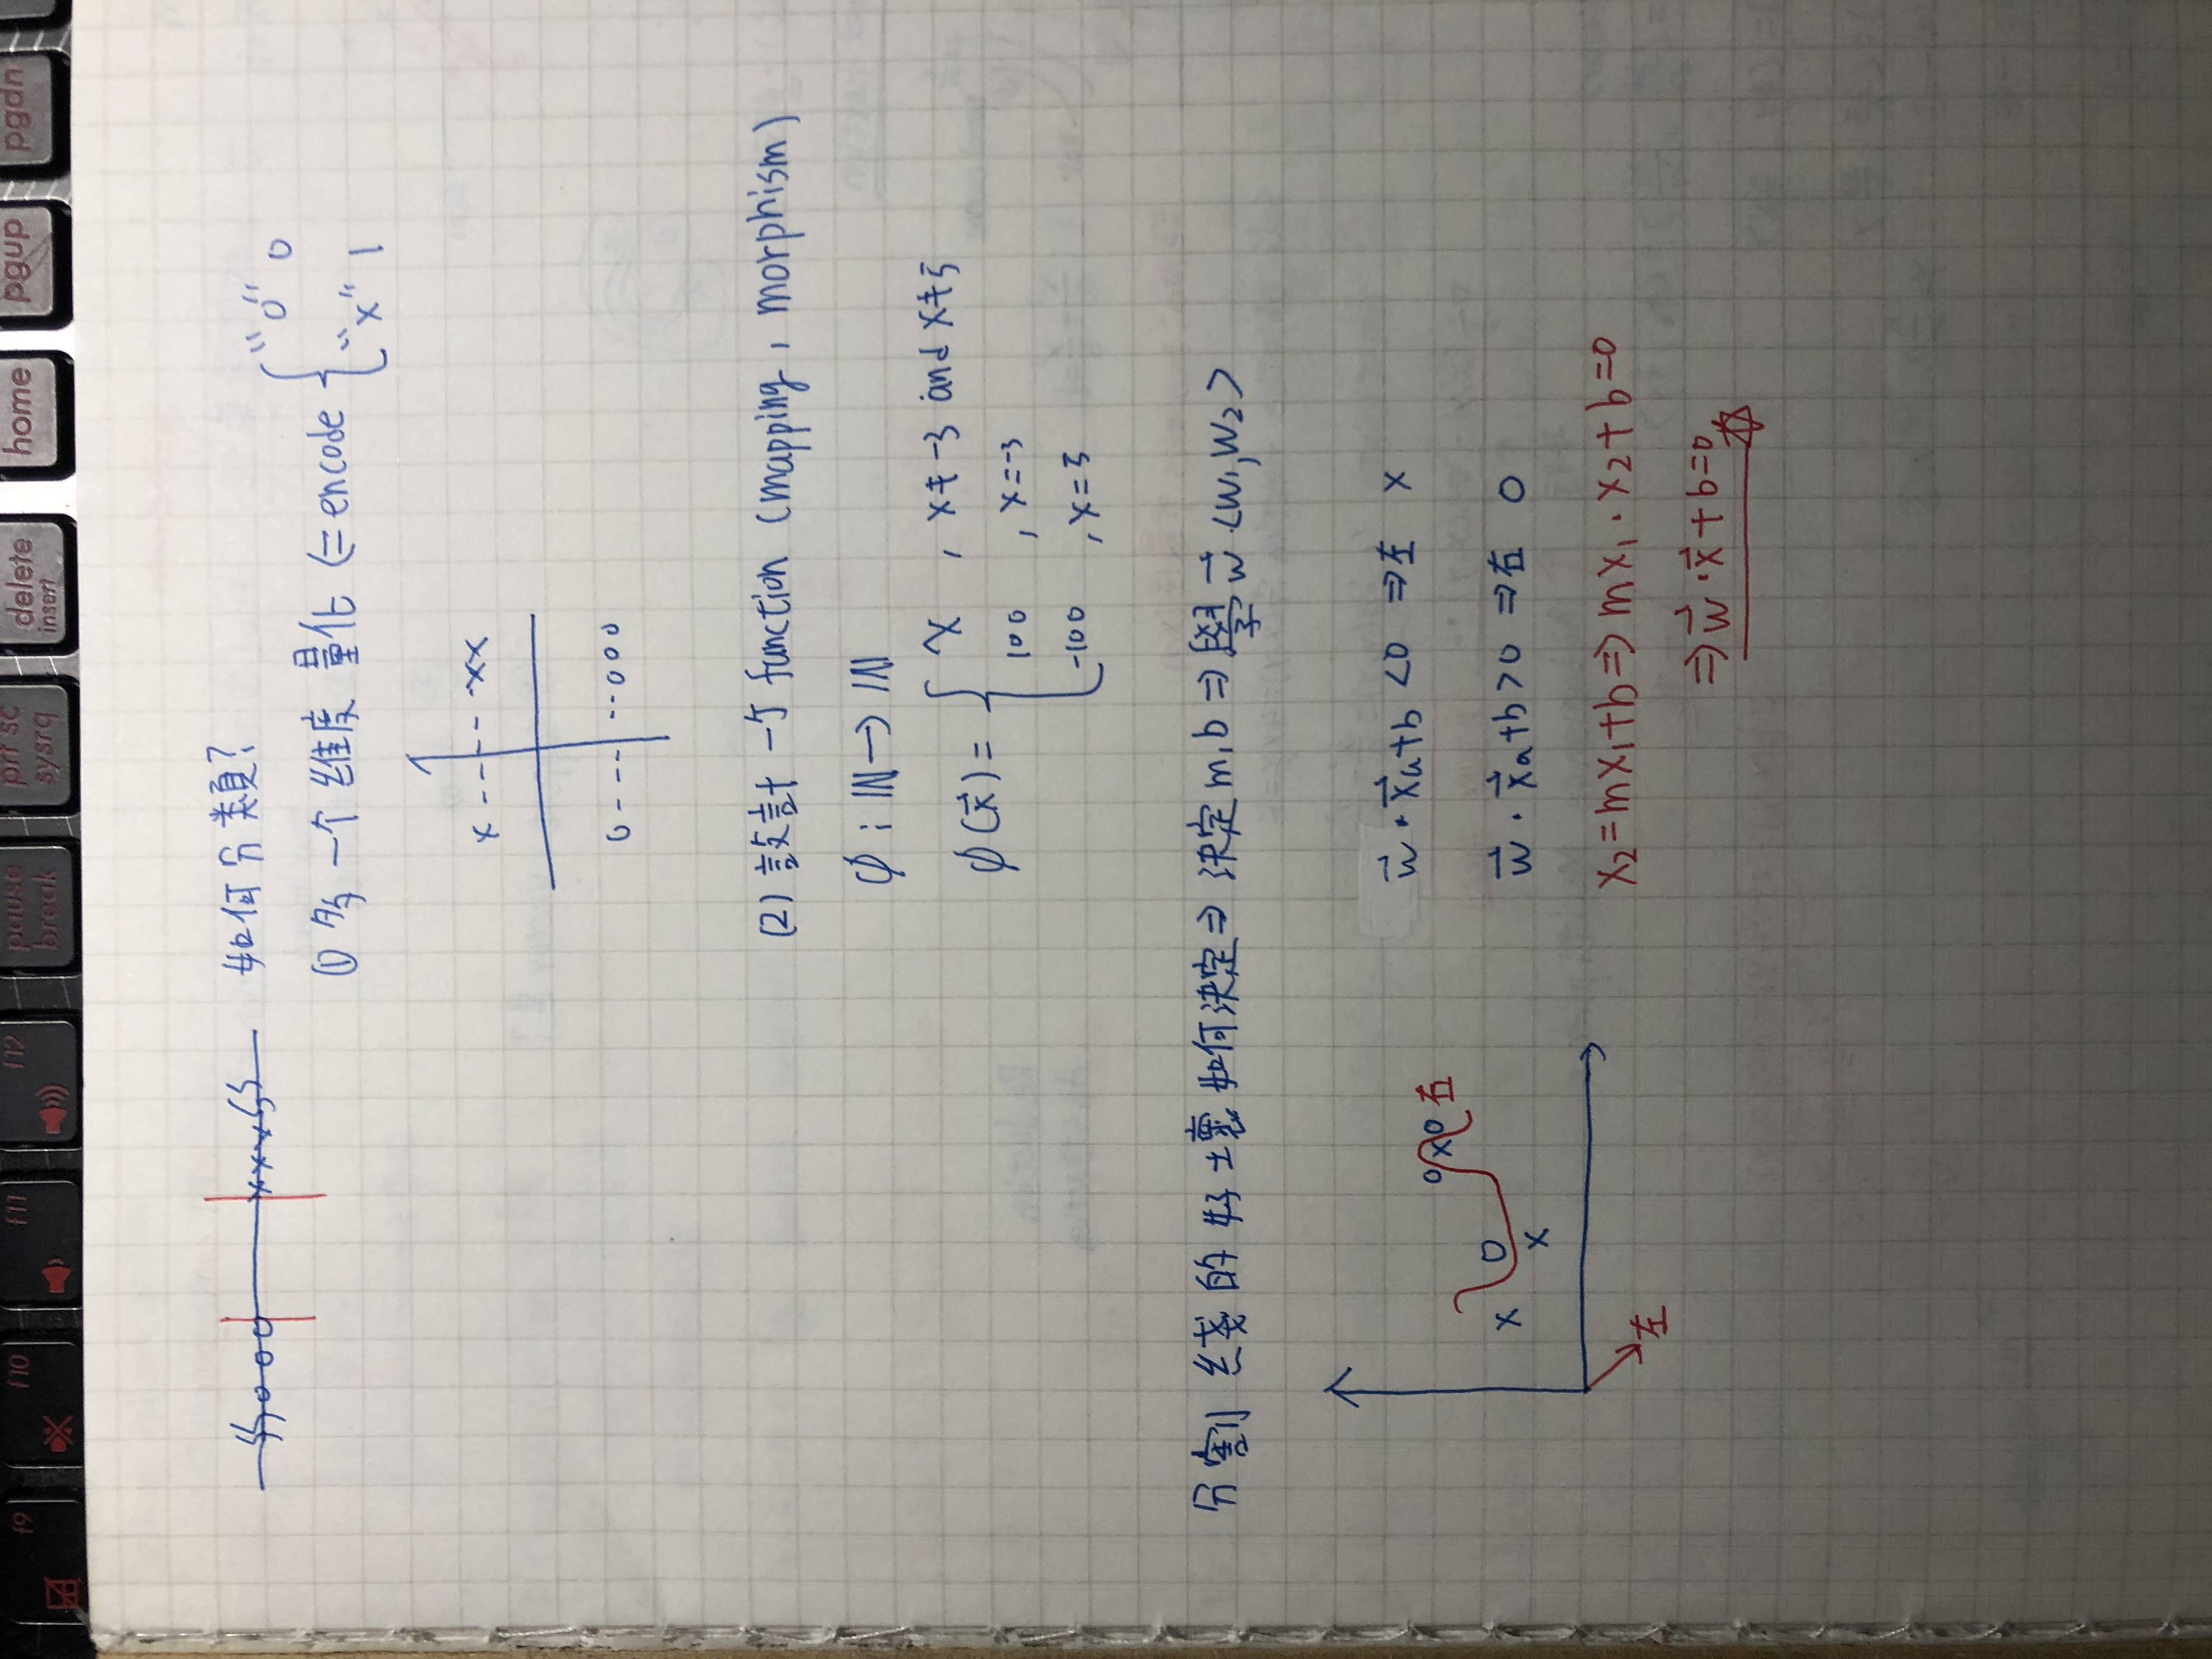 f9 f10 f11 f12 pause break prt sc sysrq delete insert home pgup pgdn
如何分類?
① 多一个維度 量化 (= encode { "0" 0
"x" 1
x --- -- xx
0 --- -- 000
(2) 設計一个 function (mapping, morphism)
φ : ℕ → ℕ
φ(x⃗) = { x , x ≠ -3 and x ≠ 5
100 , x = -3
-100 , x = 5
分割 綫 的 好壞如何決定 ⇒ 決定 m, b ⇒ 學 w⃗ <w₁, w₂>
w⃗ · x⃗a + b < 0 ⇒ 左 x
0 x 0 右
x 0
x
w⃗ · x⃗a + b > 0 ⇒ 右 0
左
x₂ = mx₁ + b ⇒ mx₁ · x₂ + b = 0
⇒ w⃗ · x⃗ + b = 0